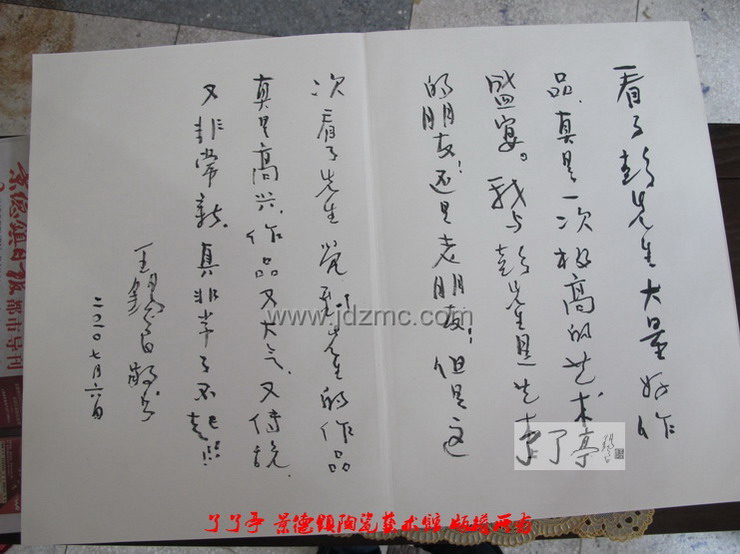 看了彭先生大量好作
品,真是一次极高的艺术
盛宴。我与彭先生是先
的朋友!还是老朋友!但是这
次看了先生觉到先生的作品
真是高兴,作品又大气,又传统,
又非常新。真非常了不起
王锡良敬书
二〇一〇七月六日
景德镇日报
都市导刊
www.jdzmc.com
了了亭
了了亭 景德镇陶瓷艺术馆 版权所有